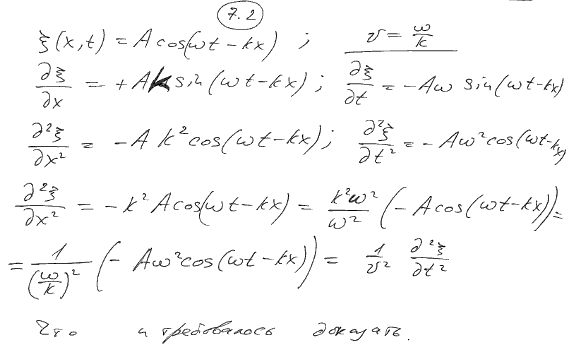 7.2
ξ(x,t) = A cos(ωt − kx) ; v = ω/k
∂ξ/∂x = +Ak sin(ωt − kx) ; ∂ξ/∂t = −Aω sin(ωt − kx)
∂²ξ/∂x² = −A k² cos(ωt − kx) ; ∂²ξ/∂t² = −Aω² cos(ωt − kx)
∂²ξ/∂x² = −k² A cos(ωt − kx) = k²ω²/ω² (−A cos(ωt − kx)) =
= 1/(ω/k)² (−Aω² cos(ωt − kx)) = 1/v² ∂²ξ/∂t²
Что и требовалось доказать.